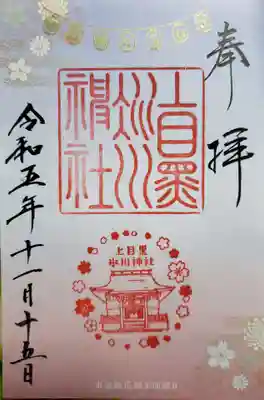 奉拝
上目黒氷川神社
上目黒
氷川神社
令和五年十一月十五日